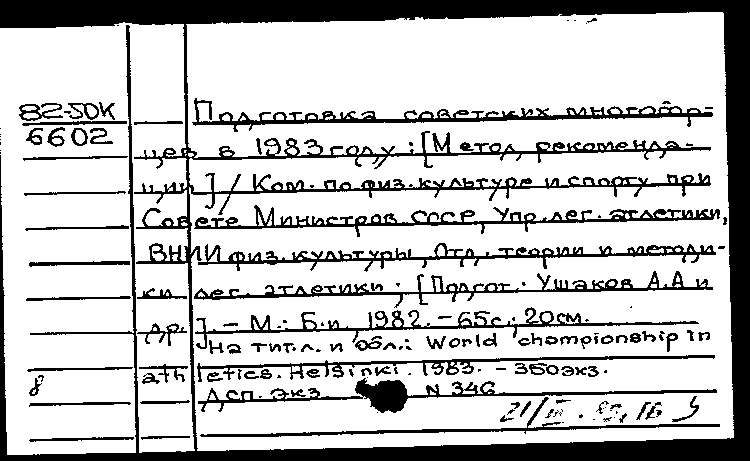 82-50К
6602
Подготовка советских многобор-
цев в 1983 году : [Метод. рекоменда-
ции] / Ком. по физ. культуре и спорту при
Совете Министров СССР, Упр. лег. атлетики,
ВНИИ физ. культуры, Отд. теории и методи-
ки лег. атлетики ; [Подгот. Ушаков А.А и
др.]. - М.: Б.и, 1982. - 65с.; 20см.
На тит.л. и обл.: World championship in
athletics. Helsinki. 1983. - 350экз.
8
Дсп. экз. N 346
21/III